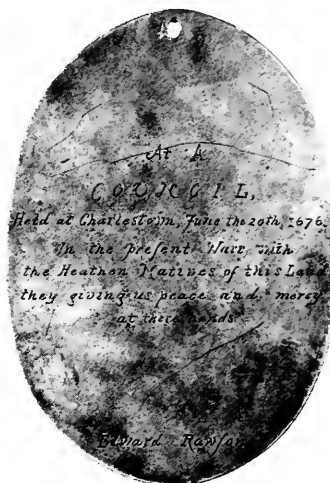 At A
COUNCIL,
Held at Charlestown, June the 20th, 1676.
In the present Warr with
the Heathen Natives of this Land
they giving us peace and mercy
at there hands
Edward Rawson